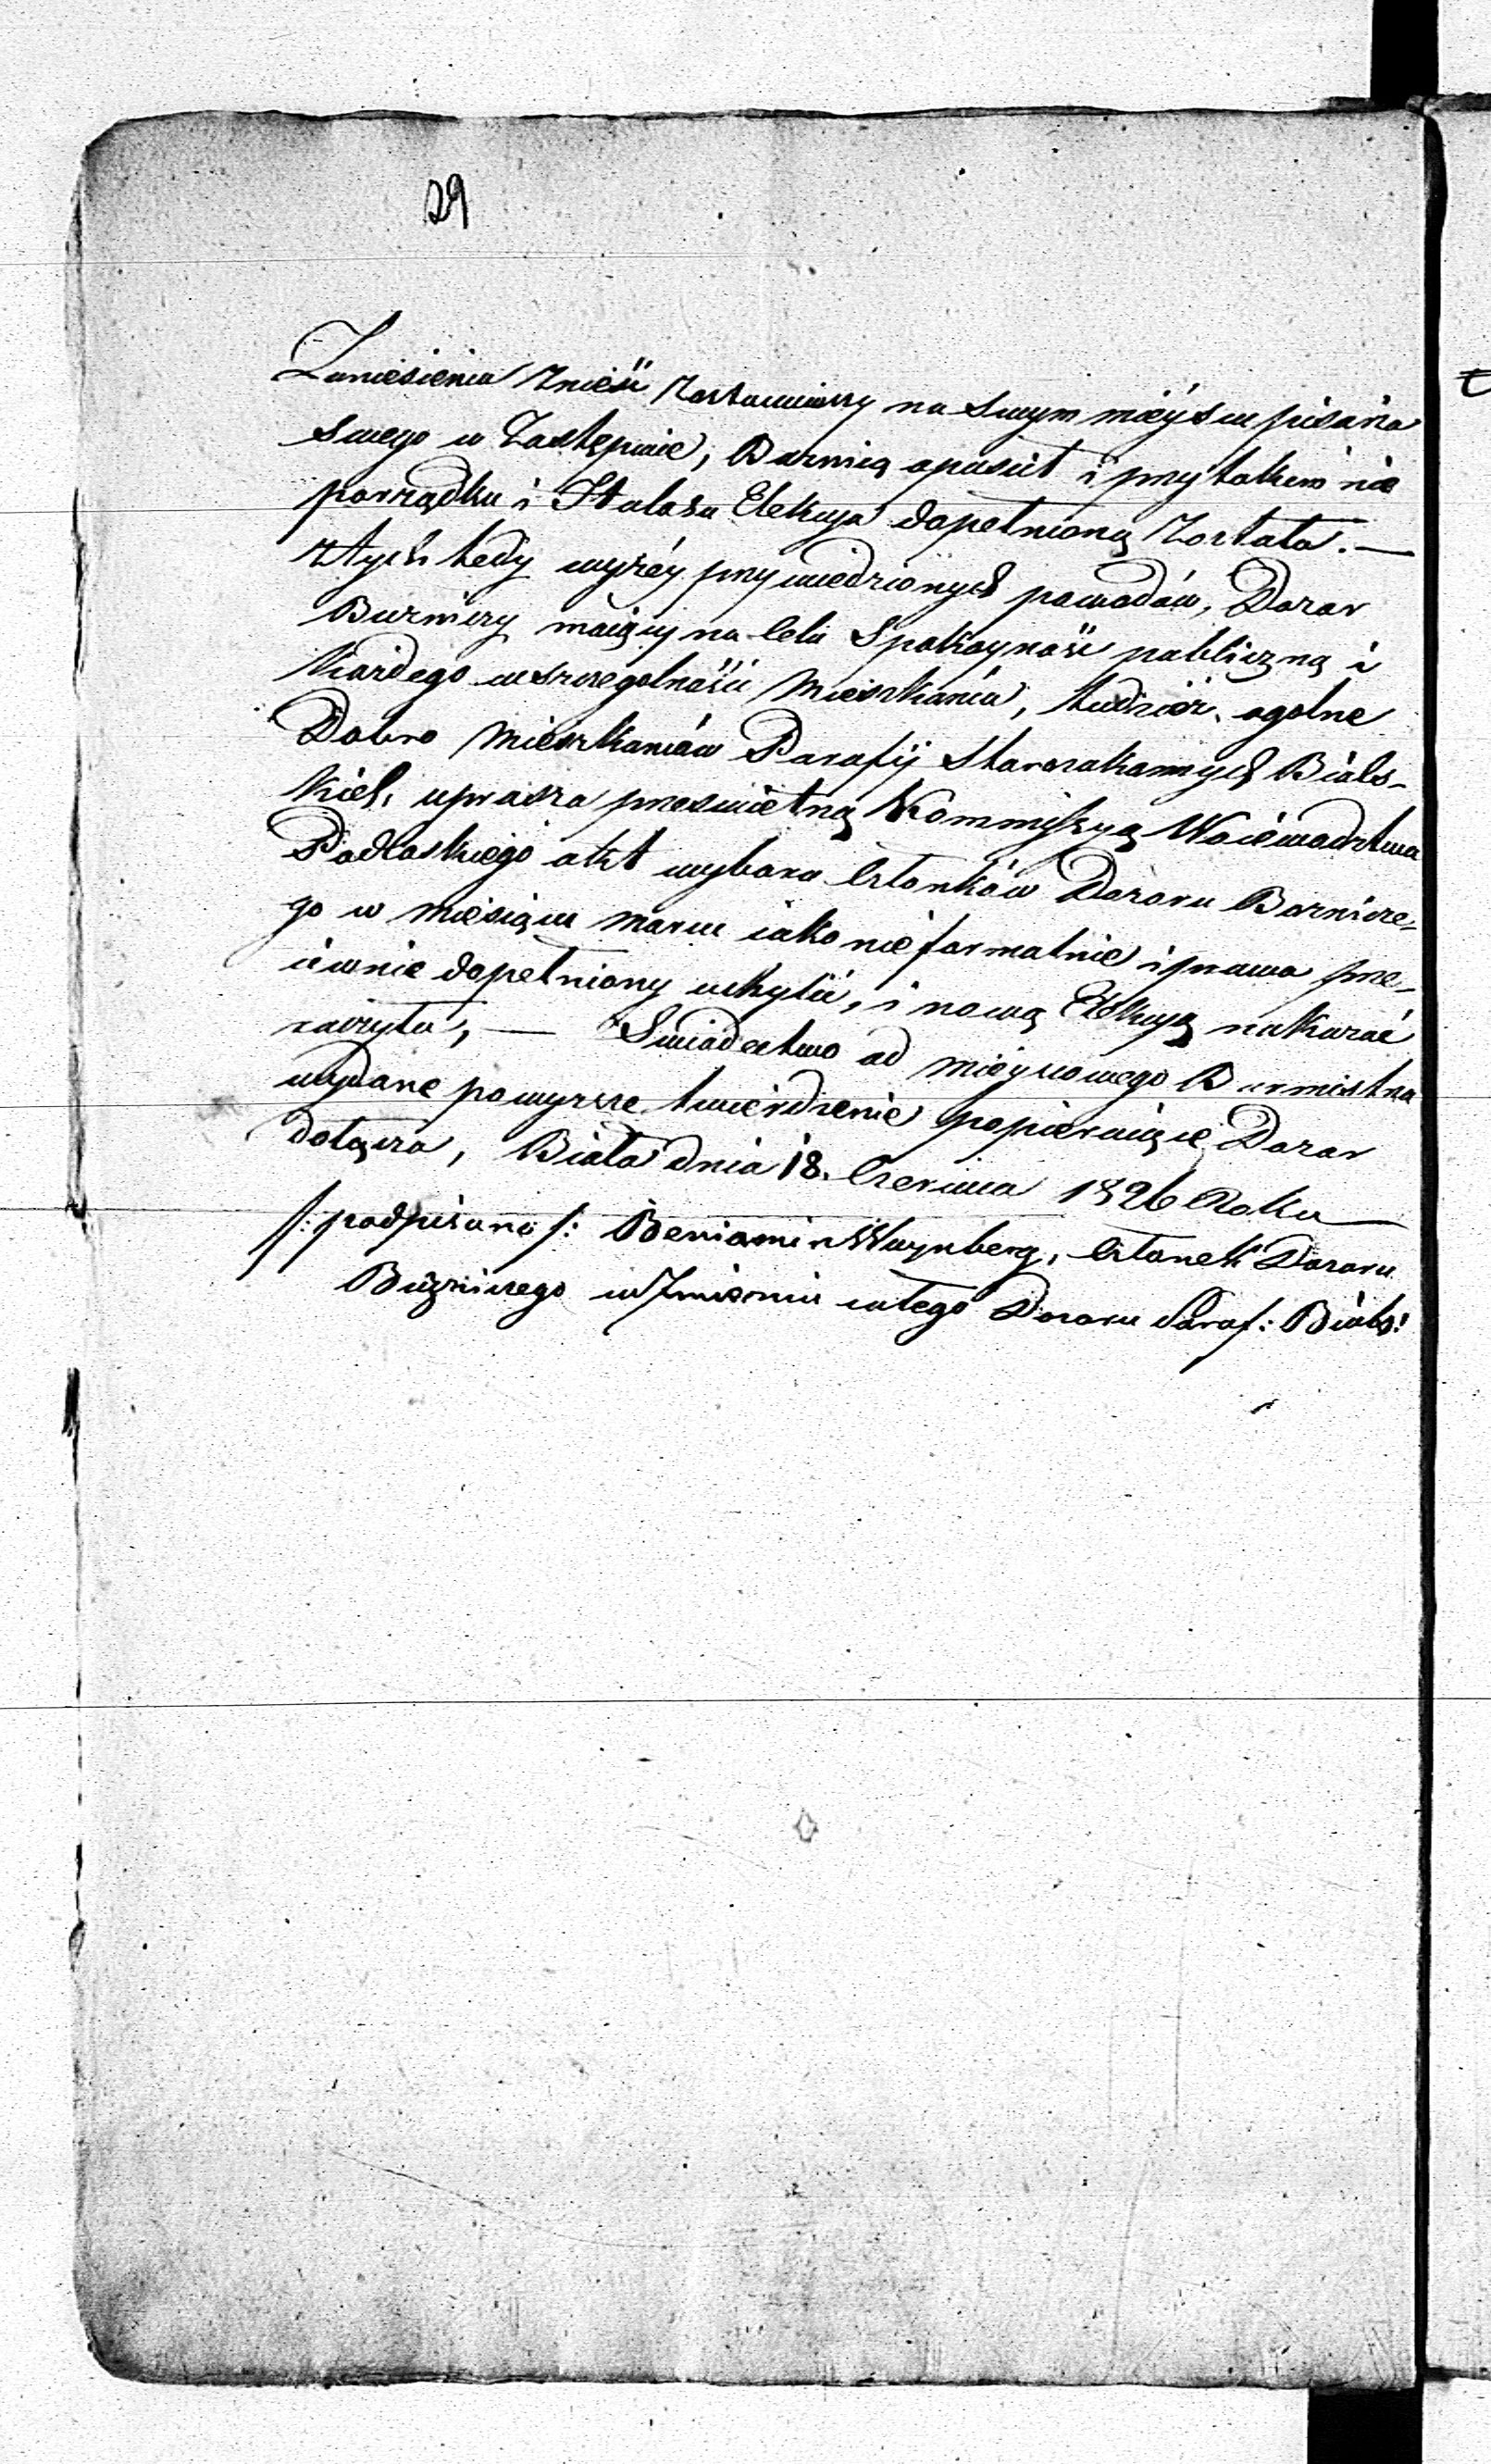 29
Zaniesienia znieść zostawiwszy na swym mieyscu pisarza
swego w Zastępcie, Bużnicą opuścił i przytakim nie
porządku i Hałasu Elekcya dopełnioną została. —
Ztych tedy wyżéy przywiedzionych powodów, Dozor
Bużniczy maiący na celu Spokoyność publiczną i
każdego wszczegolności Mieszkańca, tudzież ogolne
Dobro Mieszkańców Parafij Starozakonnych Bials-
kich, uprasza prześwietną Kommissyą Woiewodztwa
Podlaskiego akt wyboru Członków Dozoru Bożnicze-
go w Miesiącu Marcu iako nieformalnie i prawu prze-
ciwnie dopełniony uchylić, i nową Elekcyą nakazać
raczyła, — Swiadectwo od mieyscowego Burmistrza
wydane powyższe twierdzenie popieraiące Dozor
dołącza, Biała dnia 18. Czerwca 1826 Roku
/: podpisano /: Beniamin Waynberg, Członek Dozoru
Bużniczego w Imieniu całego Dozoru Paraf: Bials: